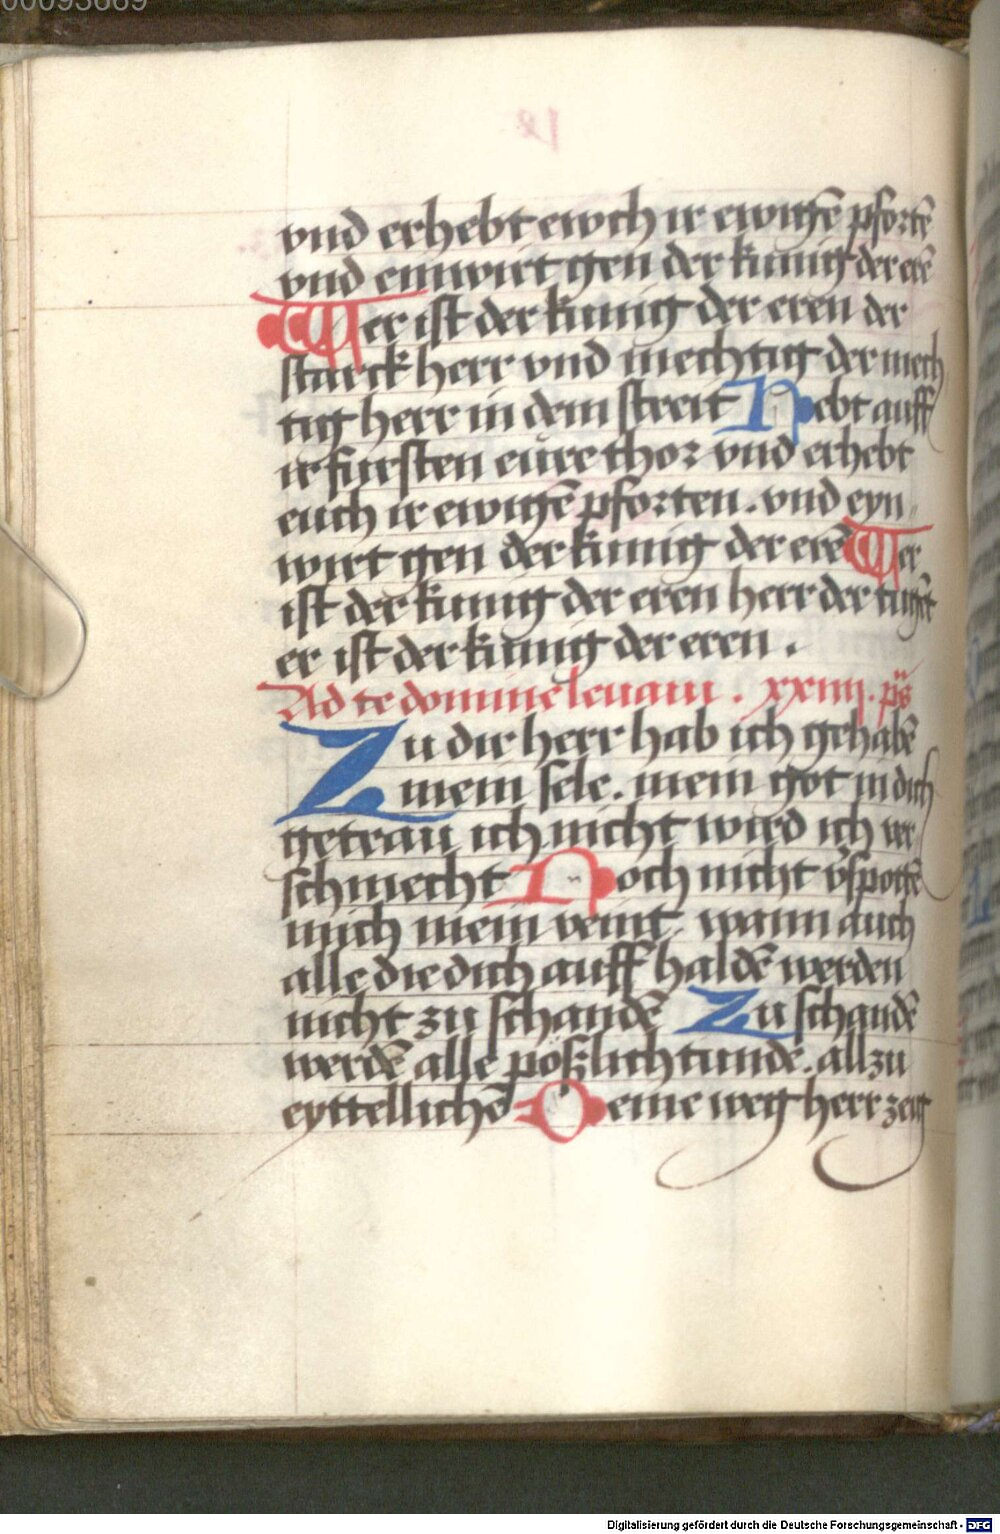 00093669
vnd erhebt ewch ir ewigē pfortē
vnd einwirt gen der kunig der erē
Wer ist der kunig der eren der
starck herr vnd mechtig der mech
tig herr in dem streit Hebt auff
ir fursten eure thor vnd erhebt
euch ir ewigē pforten. vnd eyn
wirt gen der kunig der erē Wer
ist der kunig der eren herr der tugēt
er ist der kunig der eren .
Ad te domine leuaui . xxiiii. ps
Zu dir herr hab ich gehabē
mein sele. mein got in dich
getrau ich nicht wird ich ver
schmecht Noch nicht v̄spottē
mich mein veint. wann auch
alle die dich auff haldē werden
nicht zu schandē Zu schandē
werdē alle pößlich tunde. all zu
eyttellichē Deine weg herr zeig
Digitalisierung gefördert durch die Deutsche Forschungsgemeinschaft - DFG